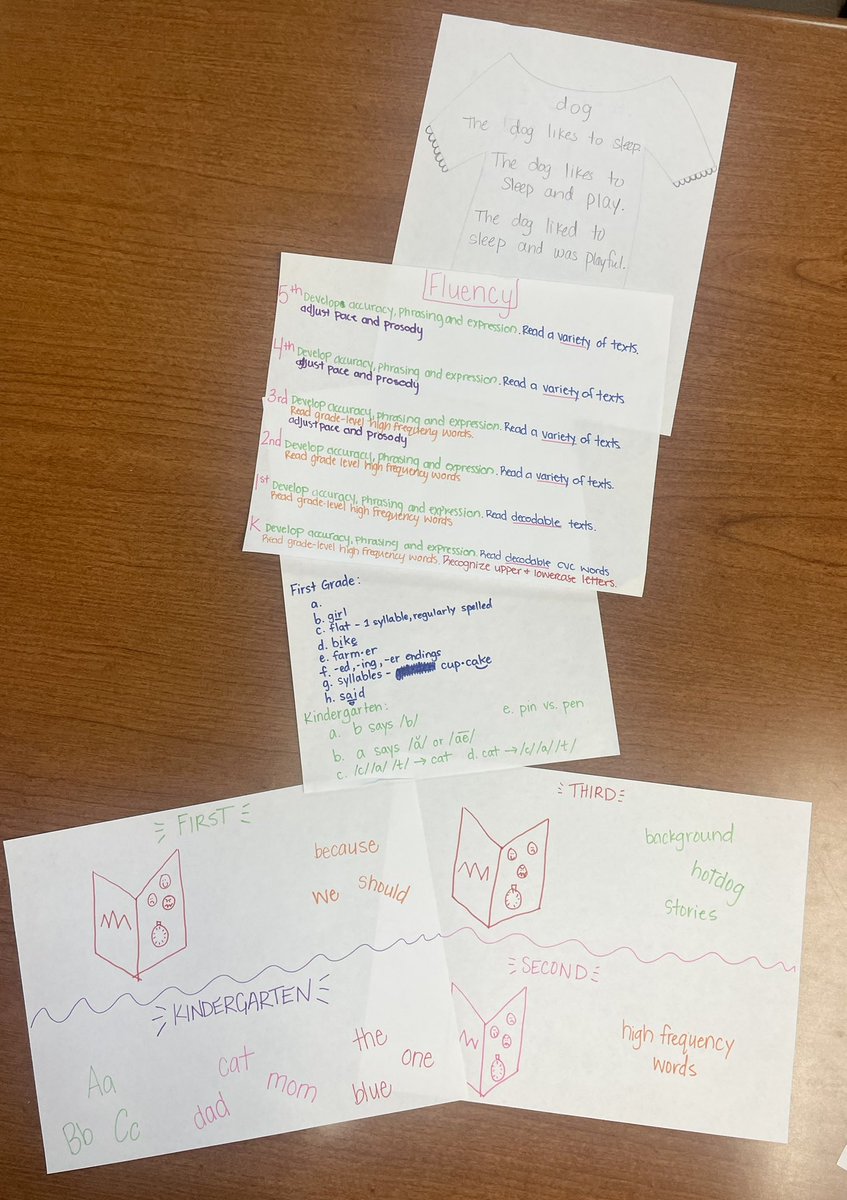 dog
The dog likes to sleep
The dog likes to
Sleep and play.
The dog liked to
sleep and was playful.
Fluency
5th Develop accuracy, phrasing and expression. Read a variety of texts.
adjust pace and prosody
4th Develop accuracy, phrasing and expression. Read a variety of texts
adjust pace and prosody
3rd Develop accuracy, phrasing and expression. Read a variety of texts
Read grade-level high frequency words.
adjust pace and prosody
2nd Develop accuracy, phrasing and expression. Read a variety of texts.
Read grade level high frequency words
1st Develop accuracy, phrasing and expression. Read decodable texts.
Read grade-level high frequency words
K Develop accuracy, phrasing and expression. Read decodable cvc words
Read grade-level high frequency words. Recognize upper + lowercase letters.
First Grade:
a.
b. girl
c. flat - 1 syllable, regularly spelled
d. bike
e. farm·er
f. -ed, -ing, -er endings
g. syllables - cup·cake
h. said
Kindergarten:
a. b says /b/
e. pin vs. pen
b. a says /ă/ or /āē/
c. /c/ /a/ /t/ → cat d. cat → /c/ /a/ /t/
FIRST
because
we should
KINDERGARTEN
Aa
Bb Cc
cat
mom
dad
the
one
blue
THIRD
background
hotdog
stories
SECOND
high frequency
words